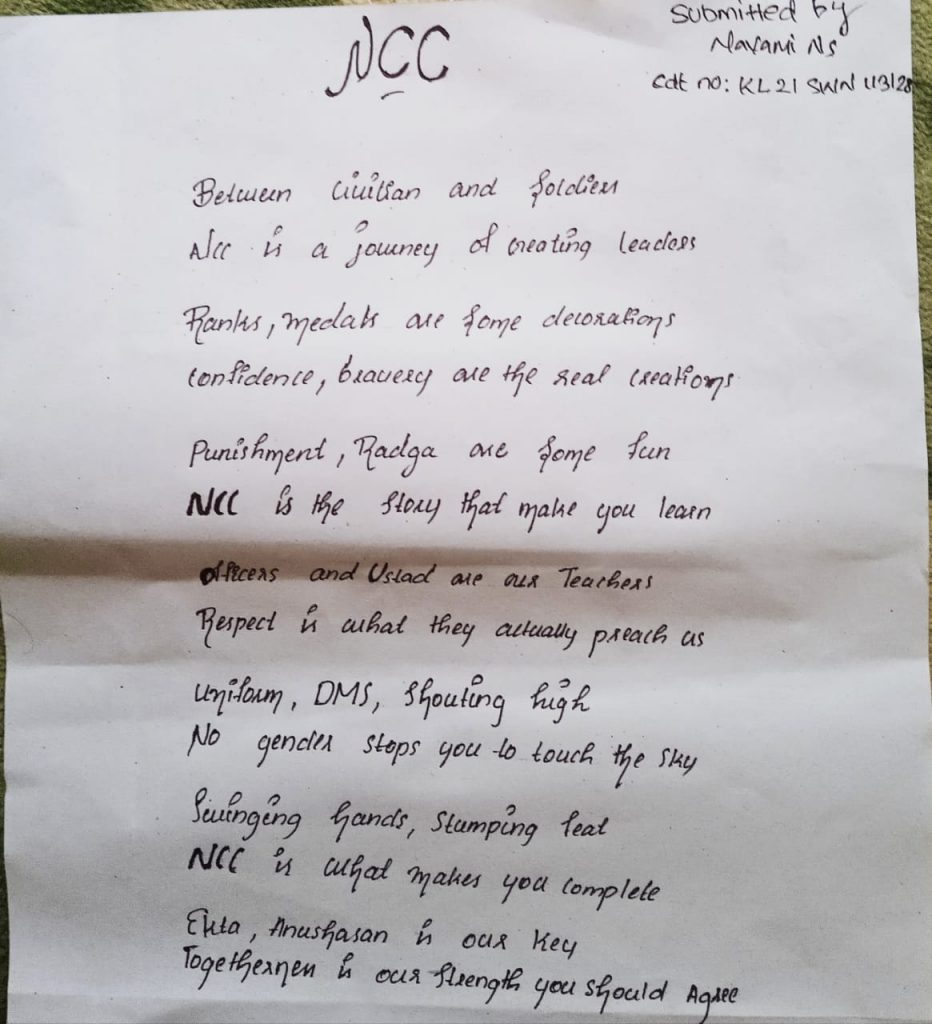 NCC
Submitted by
Navami Ns
Cdt no: KL21 SWN 113128
Between Civilian and Soldiers
NCC is a journey of creating leaders
Ranks, medals are some decorations
Confidence, bravery are the real creations
Punishment, Radga are some fun
NCC is the story that make you learn
Officers and Ustad are our Teachers
Respect is what they actually preach us
Uniform, DMS, Shouting high
No gender stops you to touch the sky
Swinging hands, stamping feat
NCC is what makes you complete
Ekta, Anushasan is our key
Togetherness is our strength you should Agree